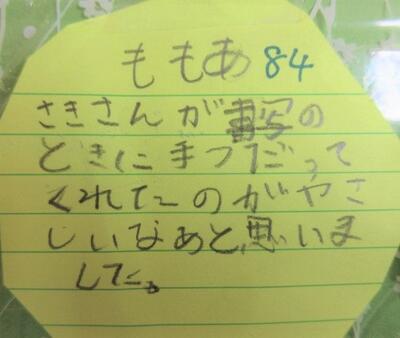 ももあ 84
さきさんが書写の
ときに手つだって
くれたのがやさ
しいなあと思いま
した。